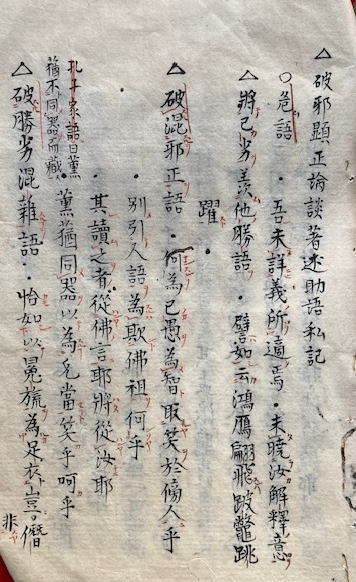 △ 破邪顕正論談著述助語私記
○危語 ・吾未詳義所適焉・未曉汝解釋意
△ 將已劣羨他勝語 ・譬如云鴻鴈翩飛跛鼈跳
躍・
△ 破混邪正語 ・何為已愚為智取笑於傍人乎
・別引人語為欺佛祖何乎
・其讀之者從佛言耶將從汝耶
孔子家語曰薰
蕕不同器而藏
・薰蕕同器以為兄當笑乎呵乎
△ 破勝劣混雜語 ・恰如以冕旒為足衣豈僭
非